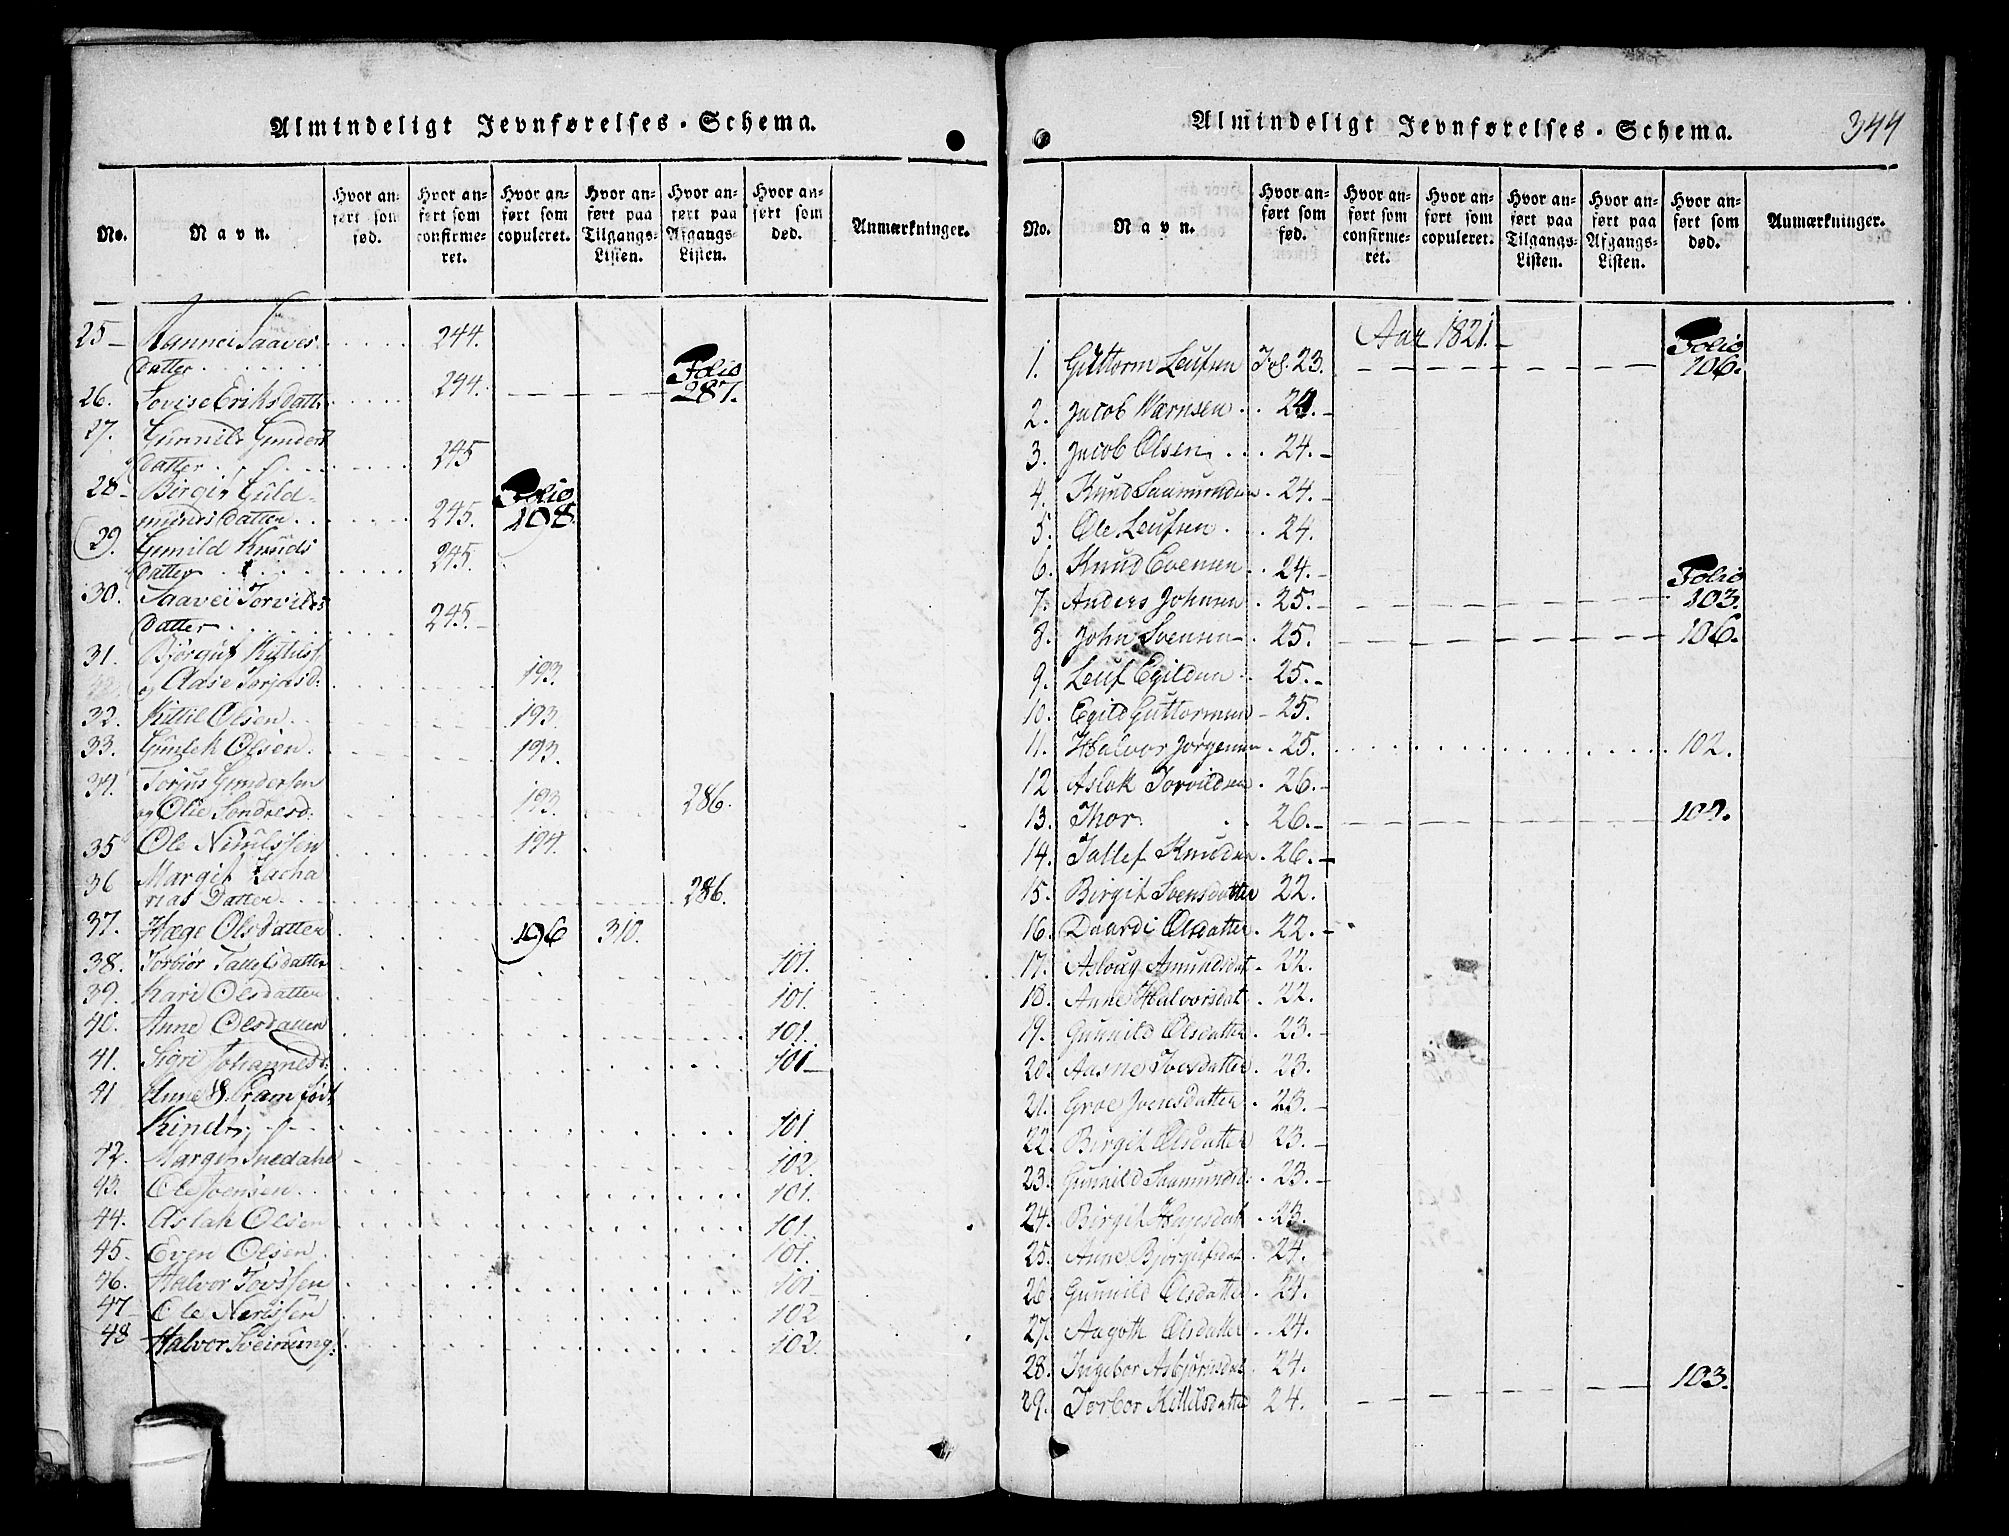 Almindeligt Jevnførelses-Schema.
No.
Navn.
Hvor anført som fød.
Hvor anført som confirmeret.
Hvor anført som copuleret.
Hvor anført paa Tilgangs-Listen.
Hvor anført paa Afgangs-Listen.
Hvor anført som død.
Anmærkninger.
25 — datter 244.
26. Lovise Eriksdatter 294. Folio 287.
27. Gunnild Gunders datter 245
28 Birgit Guldmunds datter 245. Folio 108.
29. Gunild Knuds datter 245.
30. Saavei Torvilds datter 245.
31. Bjørguf Kittilss
og Aase Torjusd: 193.
32. Kittil Olsen 193.
33. Gunlek Olsen 193.
34. Torjus Gundersen
og Olie Sondresd: 193. 286.
35 Ole Nirilssen 194
36 Margit Zacha
rias Datter 286.
37. Hæge Olsdatter 196 310.
38. Torbiør Tallefsdatter 101.
39. Kari Olsdatter 101.
40. Anne Olsdatter 101.
41. Sigri Johannesd: 101
41 Anne S. Pram født
Kinds. 101.
42. Margit 102.
43. Ole Joensen 101.
44. Aslak Olsen 101.
45. Even Olsen 101.
46. Halvor Tovssen 101
47 Ole Nerissen 102
48 Halvor Sveinung: 102.
Almindeligt Jevnførelses-Schema.
344
No.
Navn.
Hvor anført som fød.
Hvor anført som confirmeret.
Hvor anført som copuleret.
Hvor anført paa Tilgangs-Listen.
Hvor anført paa Afgangs-Listen.
Hvor anført som død.
Anmærkninger.
Aar 1821.
1. Guttorm Leufsen Fol. 23. Folio 106.
2. Jacob Wærnsen 24.
3. Jacob Olsen 24.
4. Knud Saamundsen 24.
5. Ole Leufsen 24.
6. Knud Evensen 24.
7. Anders Johnsen 25. Folio 103.
8. John Svensen 25. 106.
9. Leuf Egildsen 25.
10. Egild Guttormsen 25.
11. Halvor Jørgensen 25. 102.
12. Aslak Torvildsen 26.
13. Thor 26. 102.
14. Tallef Knudsen 26.
15. Birgit Svensdatter 22.
16. Daardi Olsdatter 22.
17. Asloug Asmundsdat 22.
18. Anne Halvorsdat 22.
19. Gunnild Olsdatter 23.
20. Aasne Tovsdatter 23.
21. Groe Joensdatter 23.
22. Birgit Olsdatter 23.
23. Gunnild Saamundsd: 23.
24. Birgit Hansdat 23.
25. Anne Bjørgufsdat 24.
26. Gunnild Olsdatter 24.
27. Aagoth Olsdatter 24.
28. Ingebor Asbjørnsdat 24.
29. Torbor Kittilsdatter 24. 103.